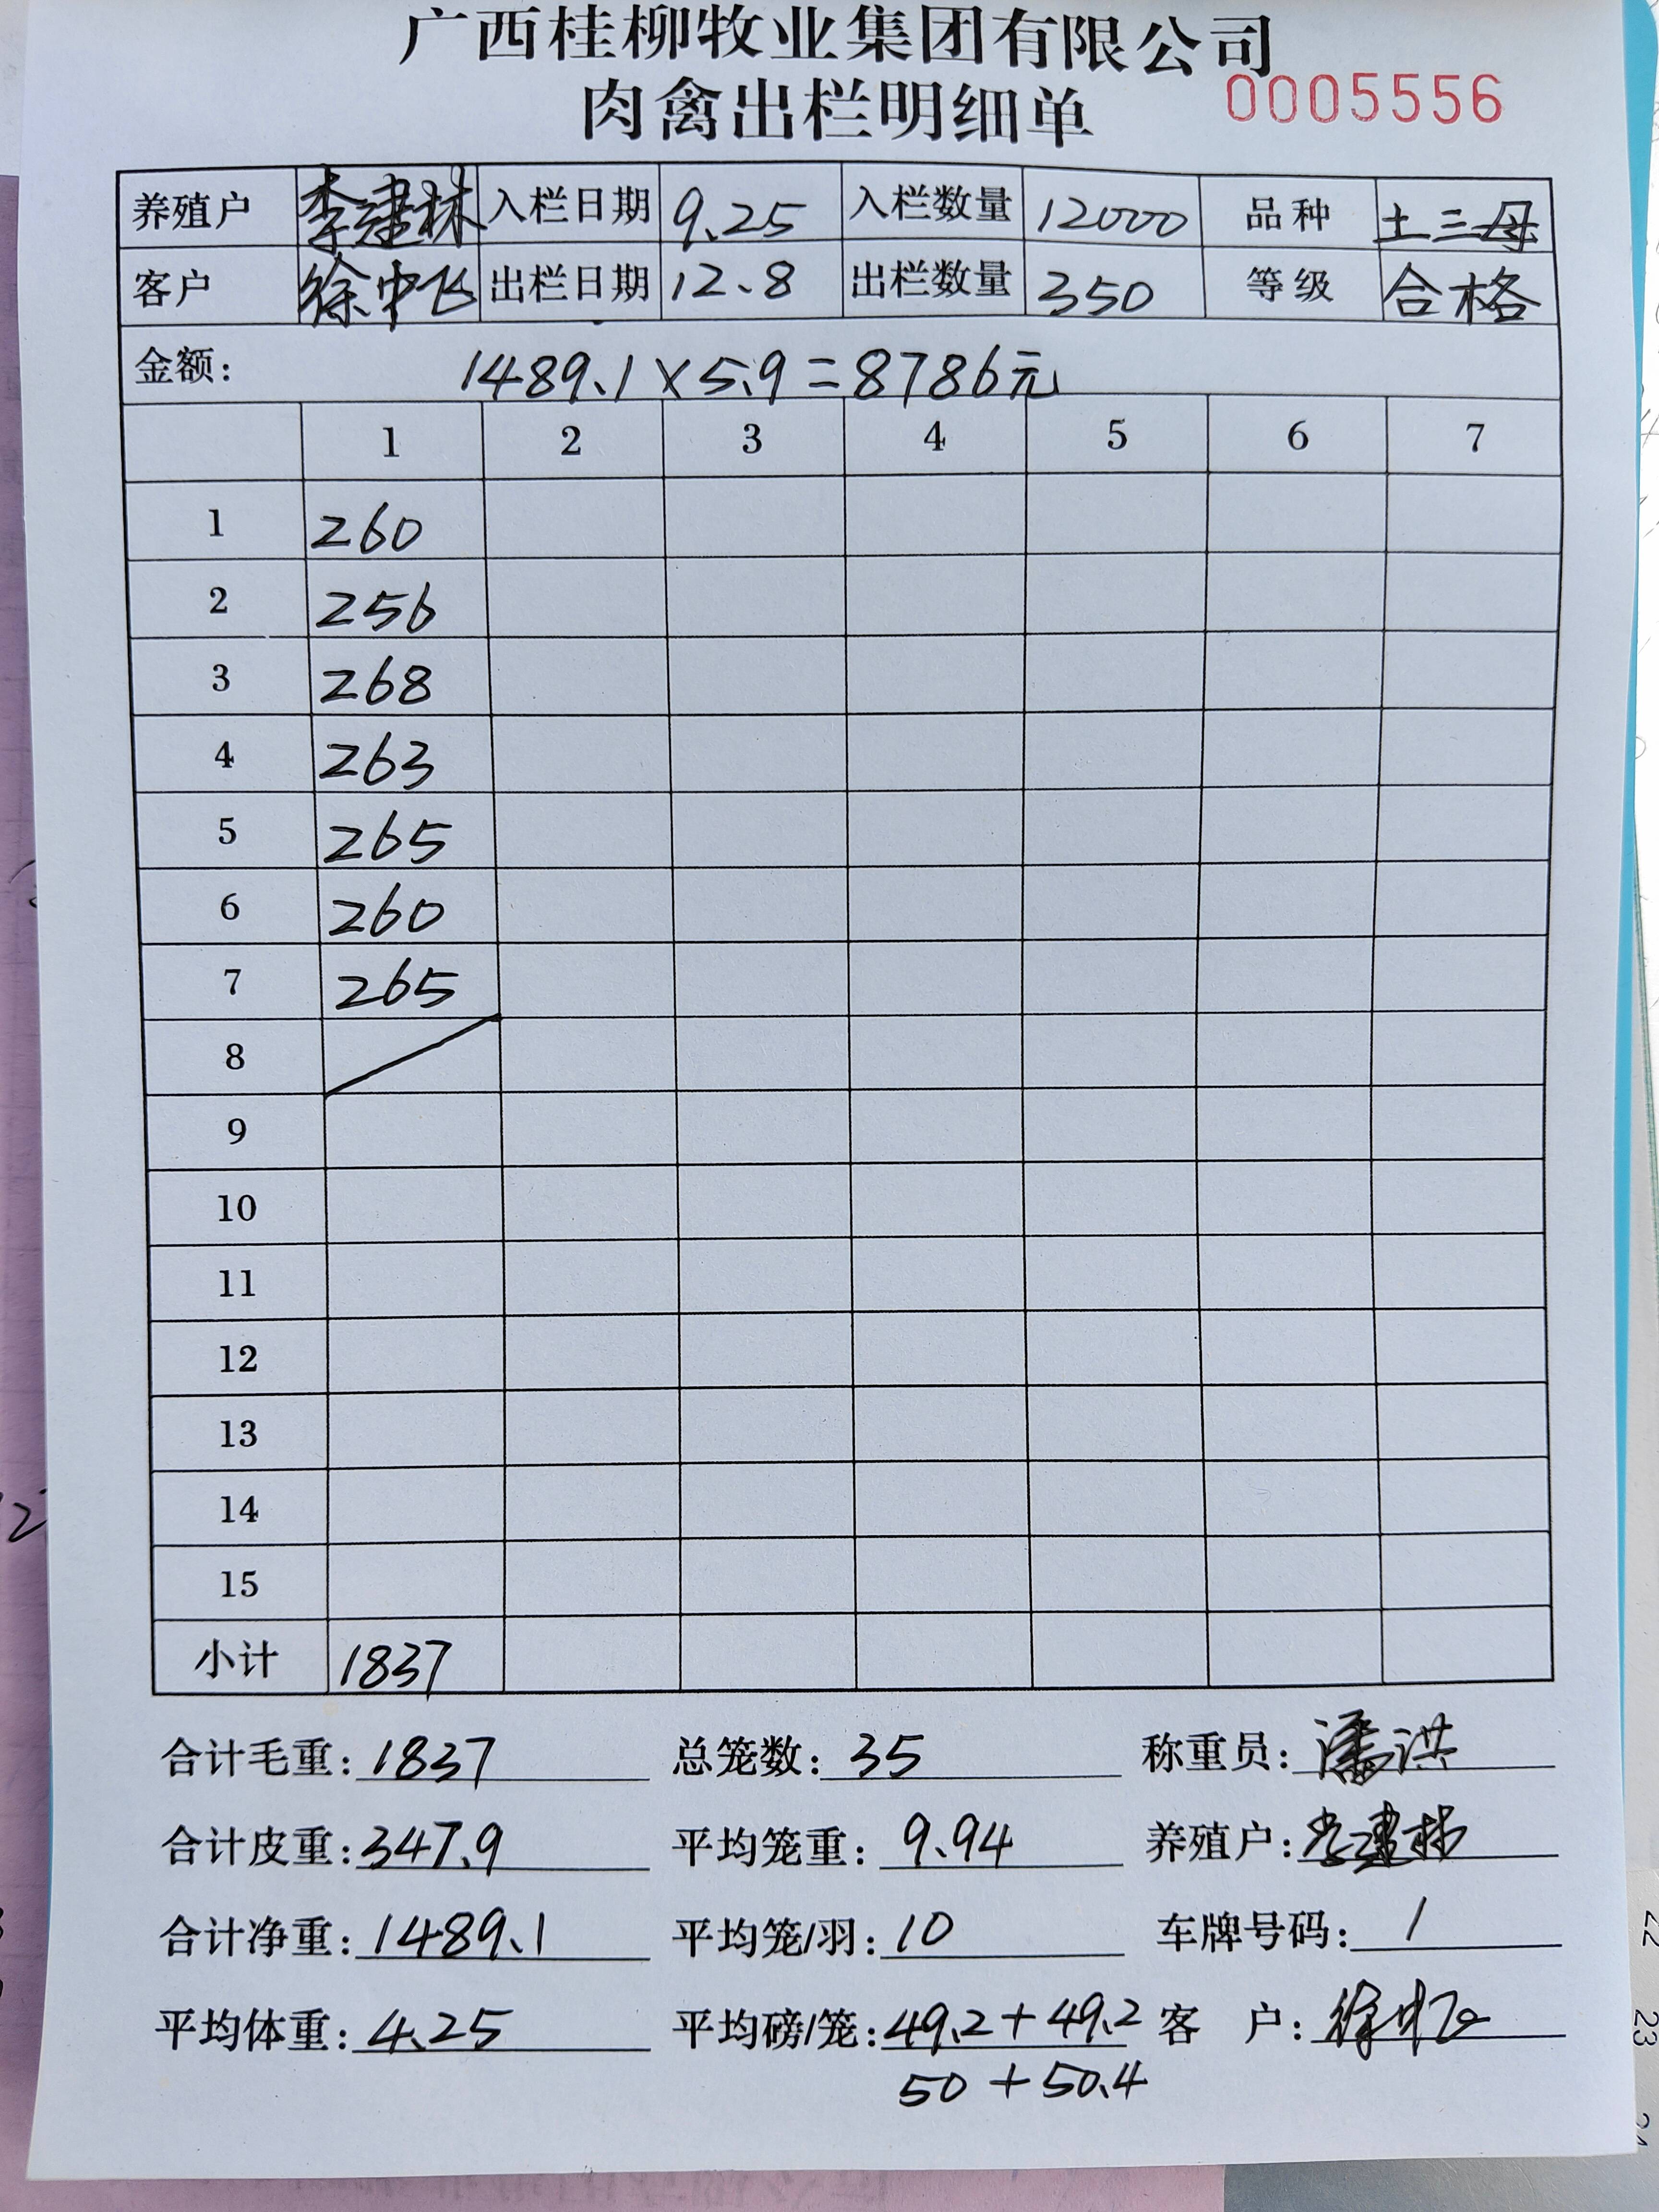 广西桂柳牧业集团有限公司
肉禽出栏明细单 0005556
养殖户 李建林 入栏日期 9.25 入栏数量 12000 品种 土三母
客户 徐中飞 出栏日期 12.8 出栏数量 350 等级 合格
金额: 1489.1×5.9=8786元
1 2 3 4 5 6 7
1 260
2 256
3 268
4 263
5 265
6 260
7 265
8
9
10
11
12
13
14
15
小计 1837
合计毛重: 1837 总笼数: 35 称重员: 潘洪
合计皮重: 347.9 平均笼重: 9.94 养殖户: 李建林
合计净重: 1489.1 平均笼/羽: 10 车牌号码: 1
平均体重: 4.25 平均磅/笼: 49.2+49.2 客 户: 徐中飞
50+50.4